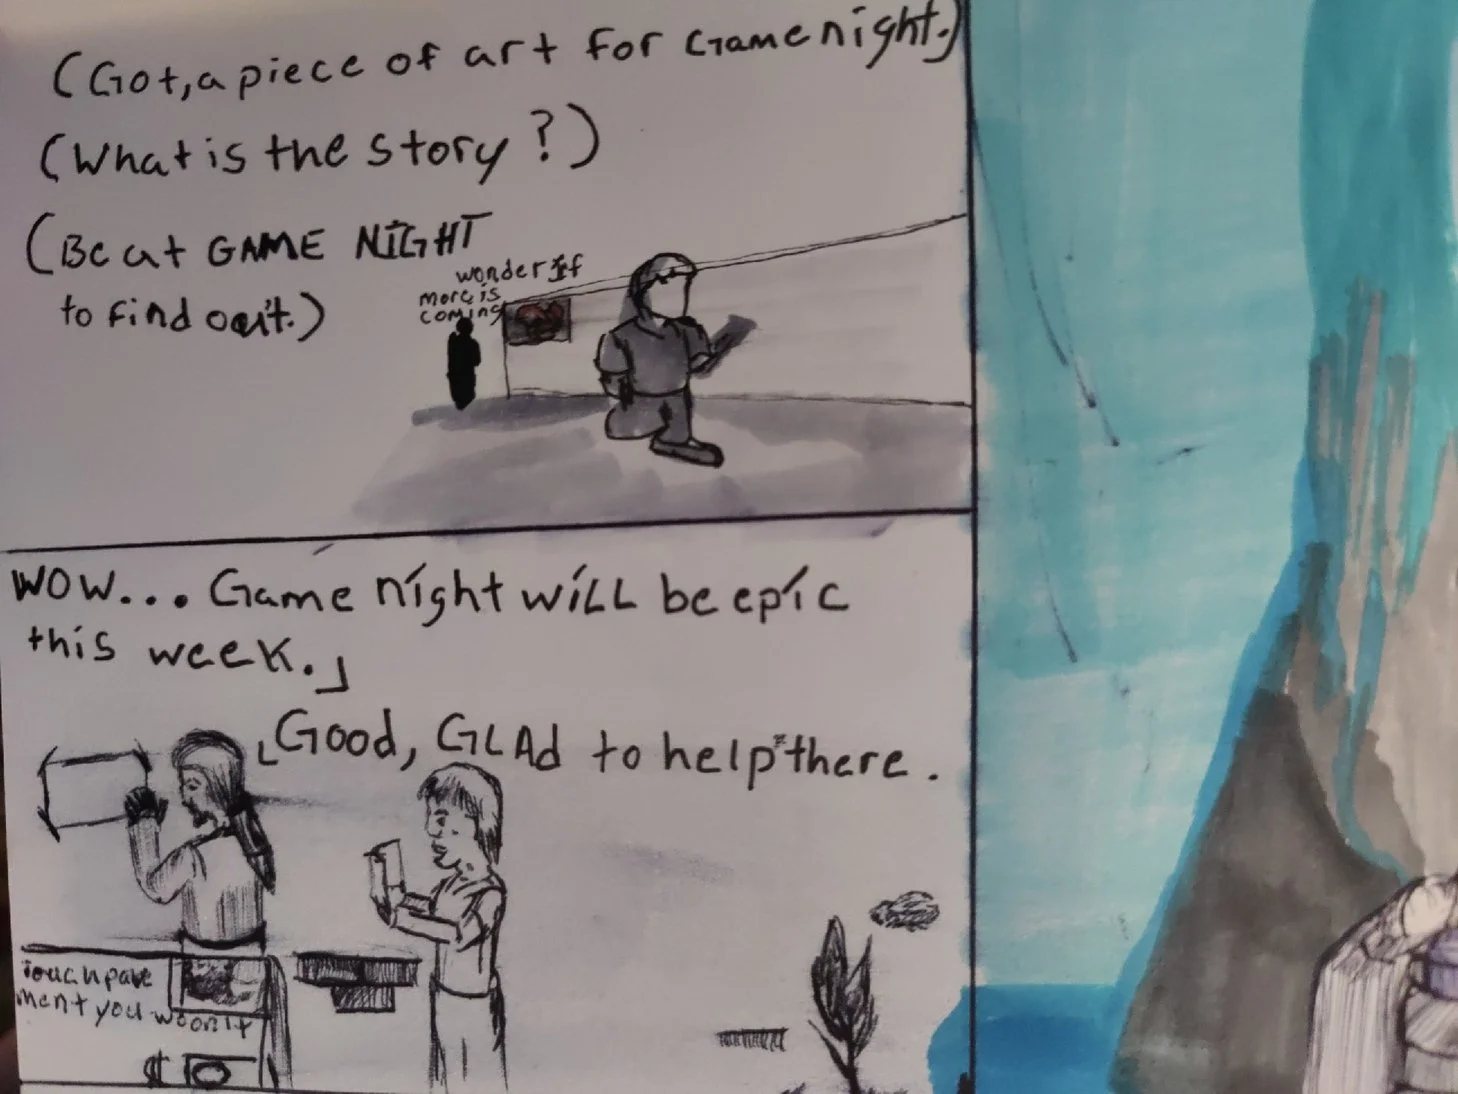 (Got, a piece of art for Game night.)
(What is the story?)
(Be at GAME NIGHT
to find out.)
wonder if
more is
coming
WOW... Game night will be epic
this week.」
「Good, GLAD to help there.
Touch pave
ment you won't
$